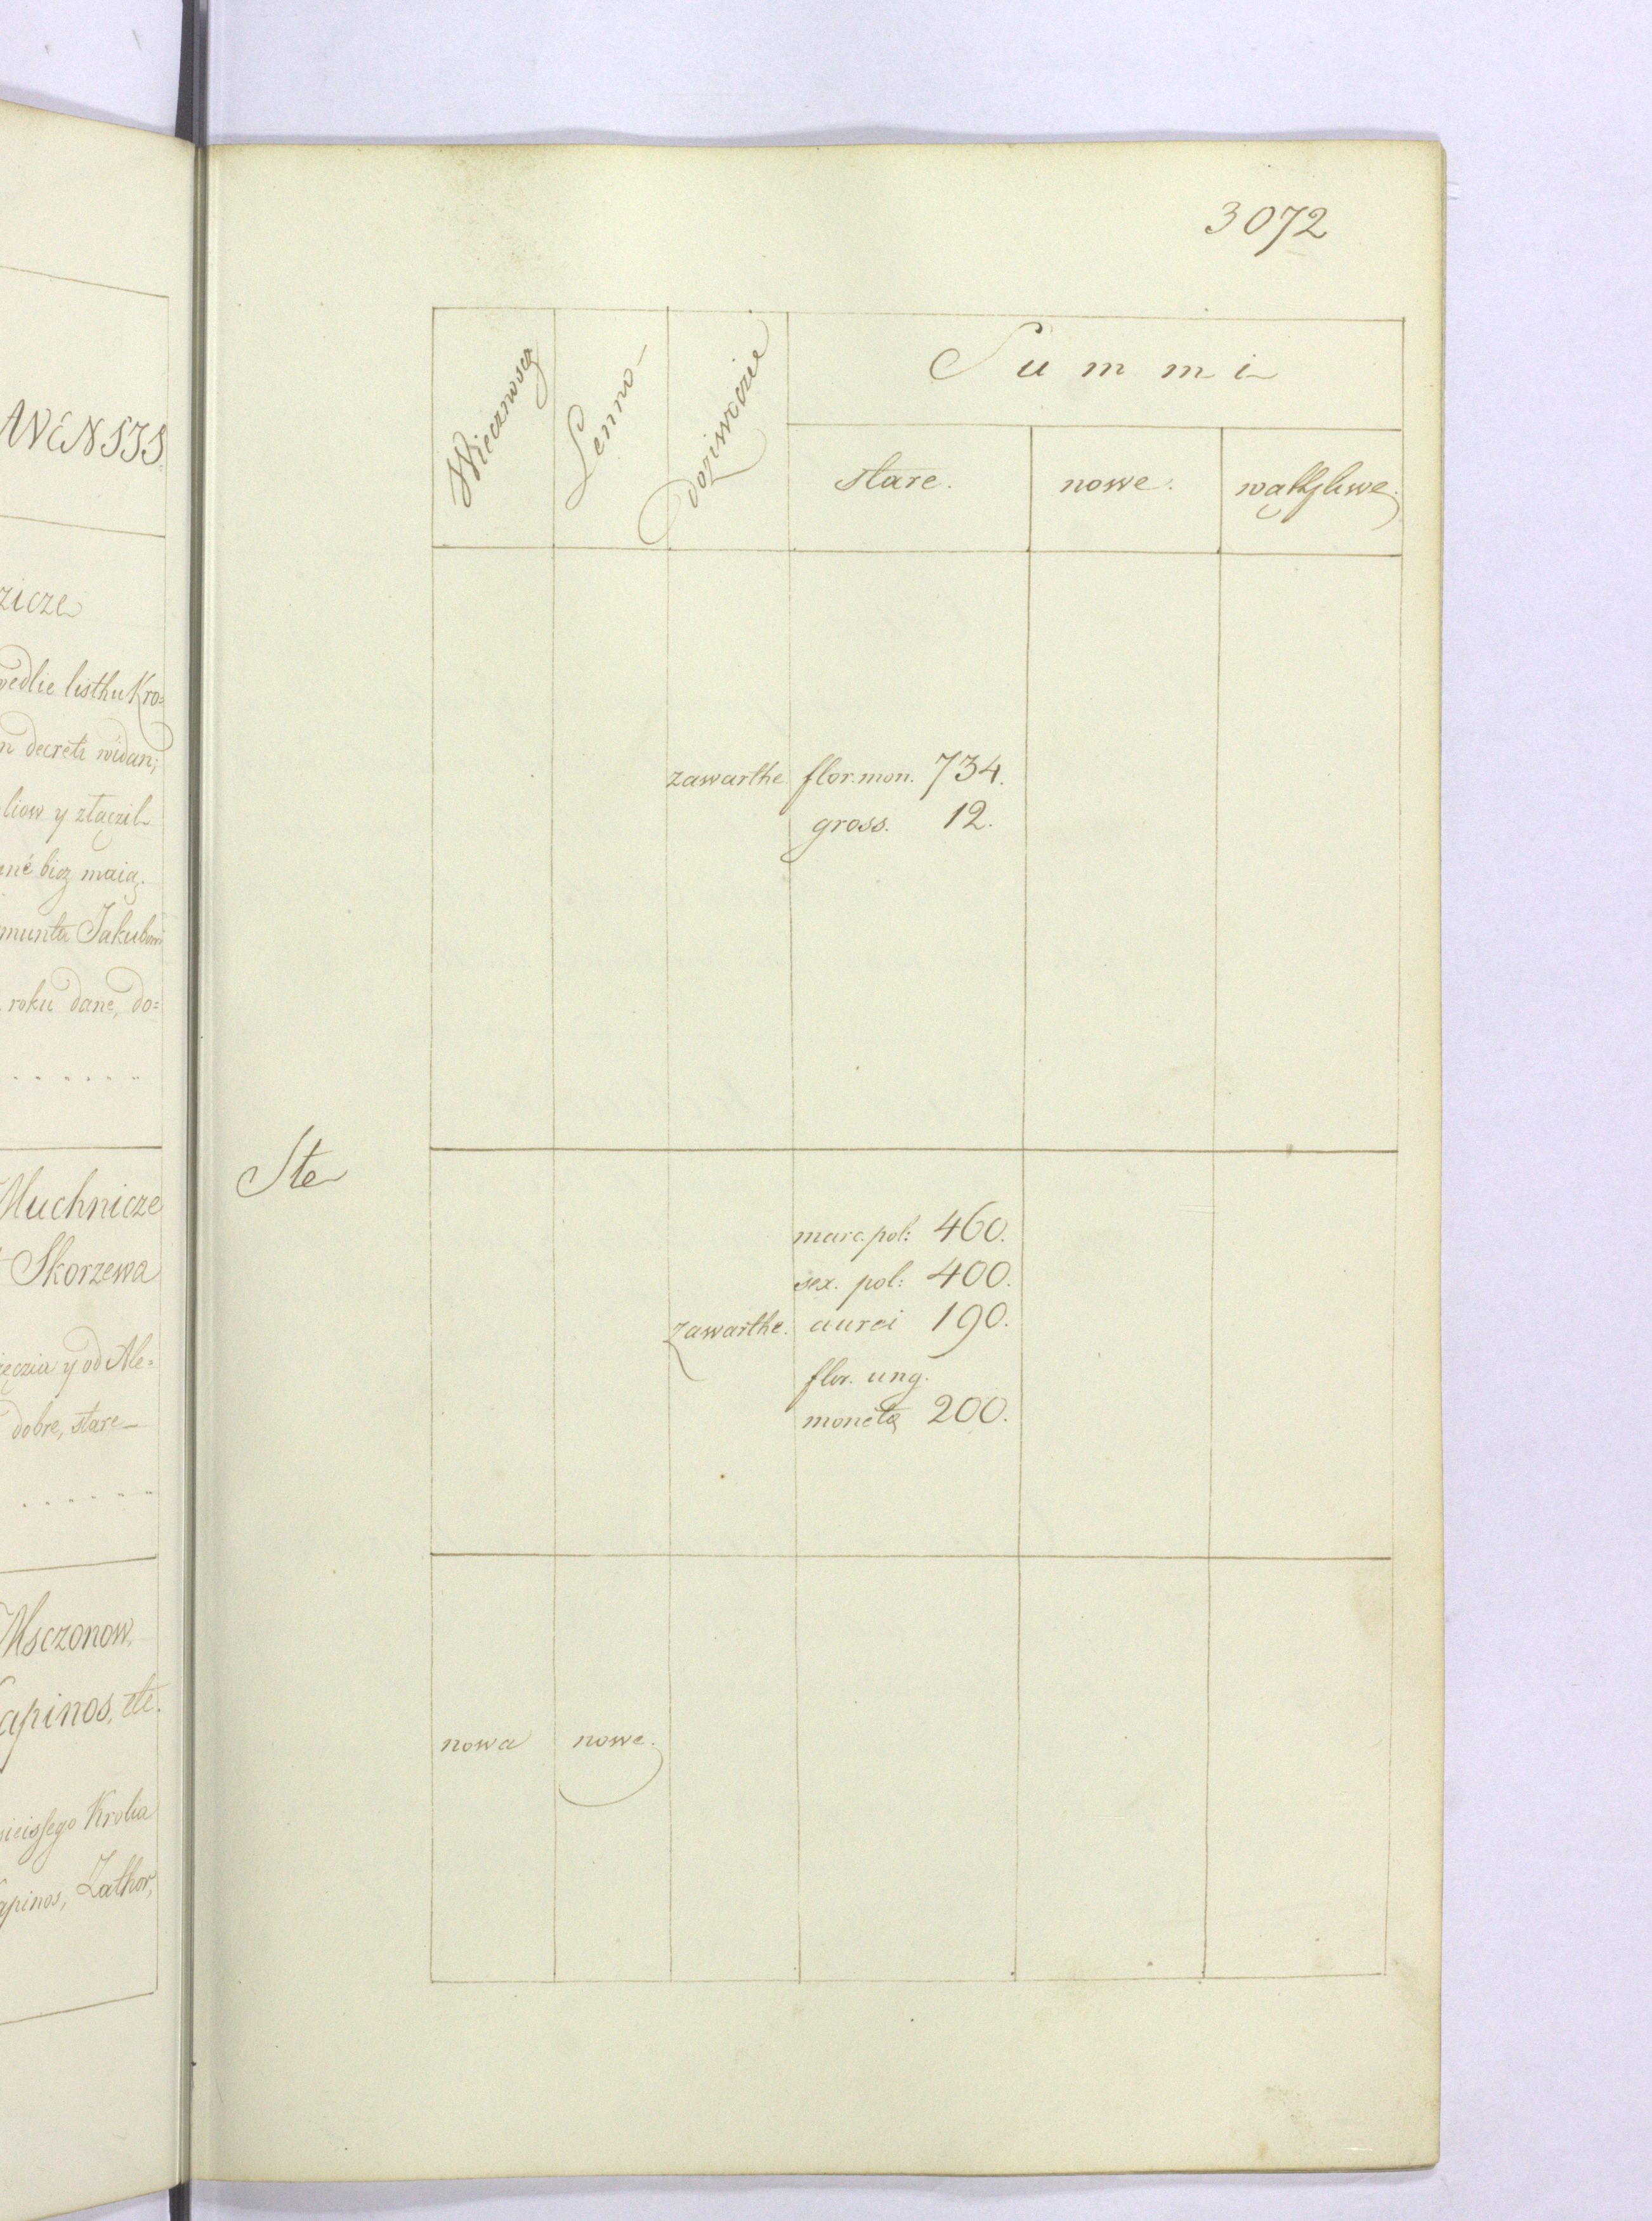 ANENSIS.
zicze
wedlie listhu Kro=
n decreti widan;
liow y złączil
né bicz maią.
munta Jakubowi
roku dane, do=
Muchnicze
Skorzewa
ięczia y od Ale=
dobre, stare
Msczonow,
Kapinos, etc.
nieissego Krolia
Kapinos, Zathor,
3072
Wiecznoscz
Lenno
Doziwoczie
Summi
stare.
nowe.
wąthpliwe.
zawarthe flor. mon. 734.
gross. 12.
Ste
marc. pol: 460.
sex. pol: 400.
zawarthe. aurei 190.
flor. ung.
monetą 200.
nowa nowe.